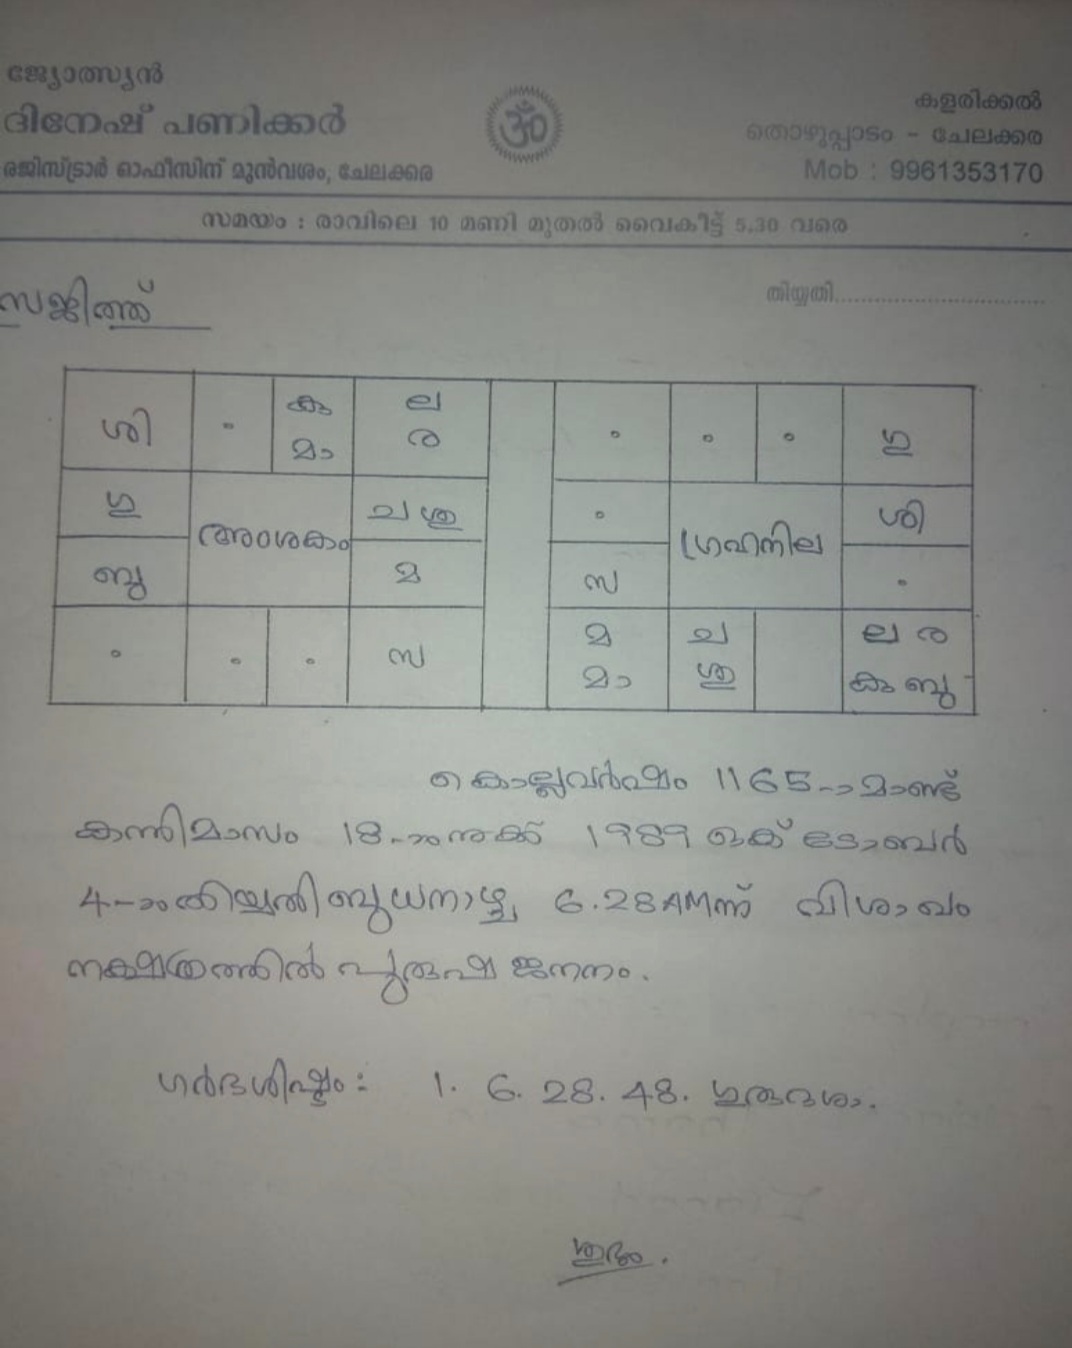 ജ്യോത്സ്യൻ
ദിനേഷ് പണിക്കർ
രജിസ്ട്രാർ ഓഫീസിന് മുൻവശം, ചേലക്കര
ॐ
കളരിക്കൽ
തൊഴുപ്പാടം - ചേലക്കര
Mob : 9961353170
സമയം : രാവിലെ 10 മണി മുതൽ വൈകീട്ട് 5.30 വരെ
തിയ്യതി..............................
സജിത്ത്
ശി കു ല
മാ ര
ഗു അംശകം ച ശു
ബു മ
സ
ഗു
ഗ്രഹനില ശി
സ
മ ച ല ര
മാ ശു കു ബു
കൊല്ലവർഷം 1165-ാമാണ്ട്
കന്നിമാസം 18-ാംനുക്ക് 1989 ഒക്ടോബർ
4-ാംതിയ്യതി ബുധനാഴ്ച 6.28AMന് വിശാഖം
നക്ഷത്രത്തിൽ പുരുഷ ജനനം.
ഗർഭശിഷ്ടം : 1. 6. 28. 48. ഗുരുദശാ.
ശുഭം.